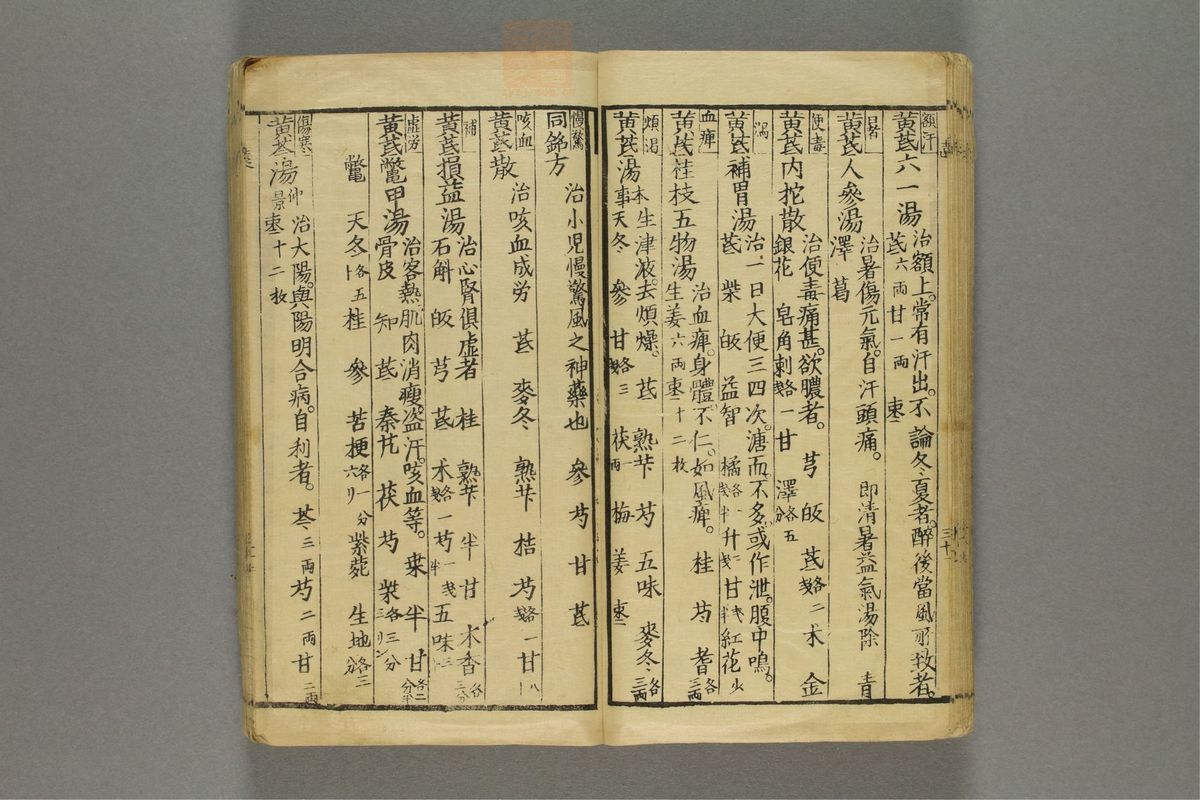 額汗
黄芪六一湯 治額上。常有汗出。不論冬夏者。醉後當風所致者。
芪六兩 甘一兩 棗
暑
黄芪人參湯 治暑傷元氣。自汗頭痛。 即清暑益氣湯除 青
澤 葛
便毒
黄芪内托散 治便毒痛甚。欲膿者。 芎 皈 芪各二 术 金
銀花 皂角刺各一 甘 澤各五分
瀉
黄芪補胃湯 治一日大便三四次。溏而不多。或作泄。腹中鳴。
芪 柴 皈 益智 橘各半 升二 甘半 紅花少
血痺
黄芪桂枝五物湯 治血痺。身體不仁。如風痺。 桂 芍 耆各三兩
生姜六兩 棗十二枚
煩渴
黄芪湯本事 生津液。去煩燥。 芪 熟芐 芍 五味 麥冬各三兩
天冬 參 甘各三 茯一兩 梅 姜 棗
慢驚
同錦方 治小児慢驚風之神藥也 參 芍 甘 芪
咳血
黄芪散 治咳血成労 芪 麥冬 熟芐 桔 芍各一 甘八
補
黄芪損益湯 治心腎俱虚者 桂 熟芐 半 甘 木香各三分
石斛 皈 芎 芪 术各一 芍一半 五味二
虚労
黄芪鱉甲湯 治客熱肌肉消瘦。盗汗。咳血等。 桑 半 甘各二分半
骨皮 知 芪 秦艽 茯 芍 柴各三分三リン
鱉 天冬各五卜 桂 參 苦梗各一分六リ 紫菀 生地各三分
傷寒
黄芩湯仲景 治大陽。與陽明合病。自利者。 芩三兩 芍二兩 甘二兩
棗十二枚
三十一